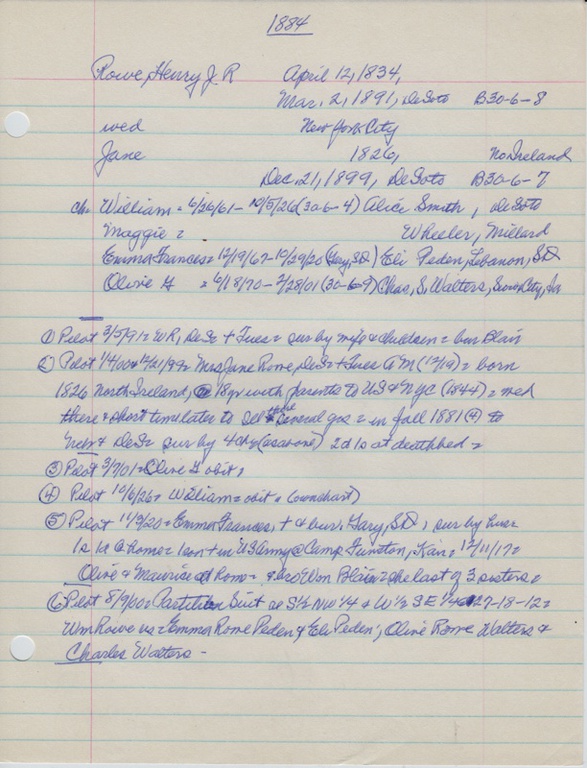 1884
Rowe, Henry J R April 12, 1834,
Mar. 2, 1891, DeSoto B30-6-8
wed New York City
Jane 1826, No. Ireland
Dec. 21, 1899, DeSoto B30-6-7
ch. William = 6/26/61 - 10/5/26 (30-6-4) Alice Smith, DeSoto
Maggie = Wheeler, Millard
Emma Frances = 12/19/67 - 10/29/20 (Gary, SD) Eli Peden, Lebanon, SD
Olive G = 6/18/70 - 2/28/01 (30-6-9) Chas. S. Walters, Sioux City, Ia
① Pilot 3/5/91 = WR, DeSo + Tues = sur by wife & children = bur Blair
② Pilot 1/4/00 & 12/21/99 = Mrs Jane Rowe, DeSo + Tues AM (12/19) = born
1826 North Ireland, @ 18yr with parents to US & NYC (1844) = wed
there & short time later to Ill there several yrs = in fall 1881 (4) to
Nebr & DeSo sur by 4 ch (as above) 2 ds at deathbed =
③ Pilot 3/7/01 = Olive G obit =
④ Pilot 10/6/26 = William = obit =
⑤ Pilot 11/3/20 = Emma Frances, + & bur Gary, SD, sur by hus
1s 1d @ home = 1 son + in US Army @ Camp Funston, Kan = 12/11/17 =
Olive & Maurice at home = & bro Wm Blair = she last of 3 sisters =
⑥ Pilot 8/9/00 = Partition Suit re S½ NW¼ & W½ SE¼ 27-18-12 =
Wm Rowe vs = Emma Rowe Peden & Eli Peden; Olive Rowe Walters &
Charles Walters -